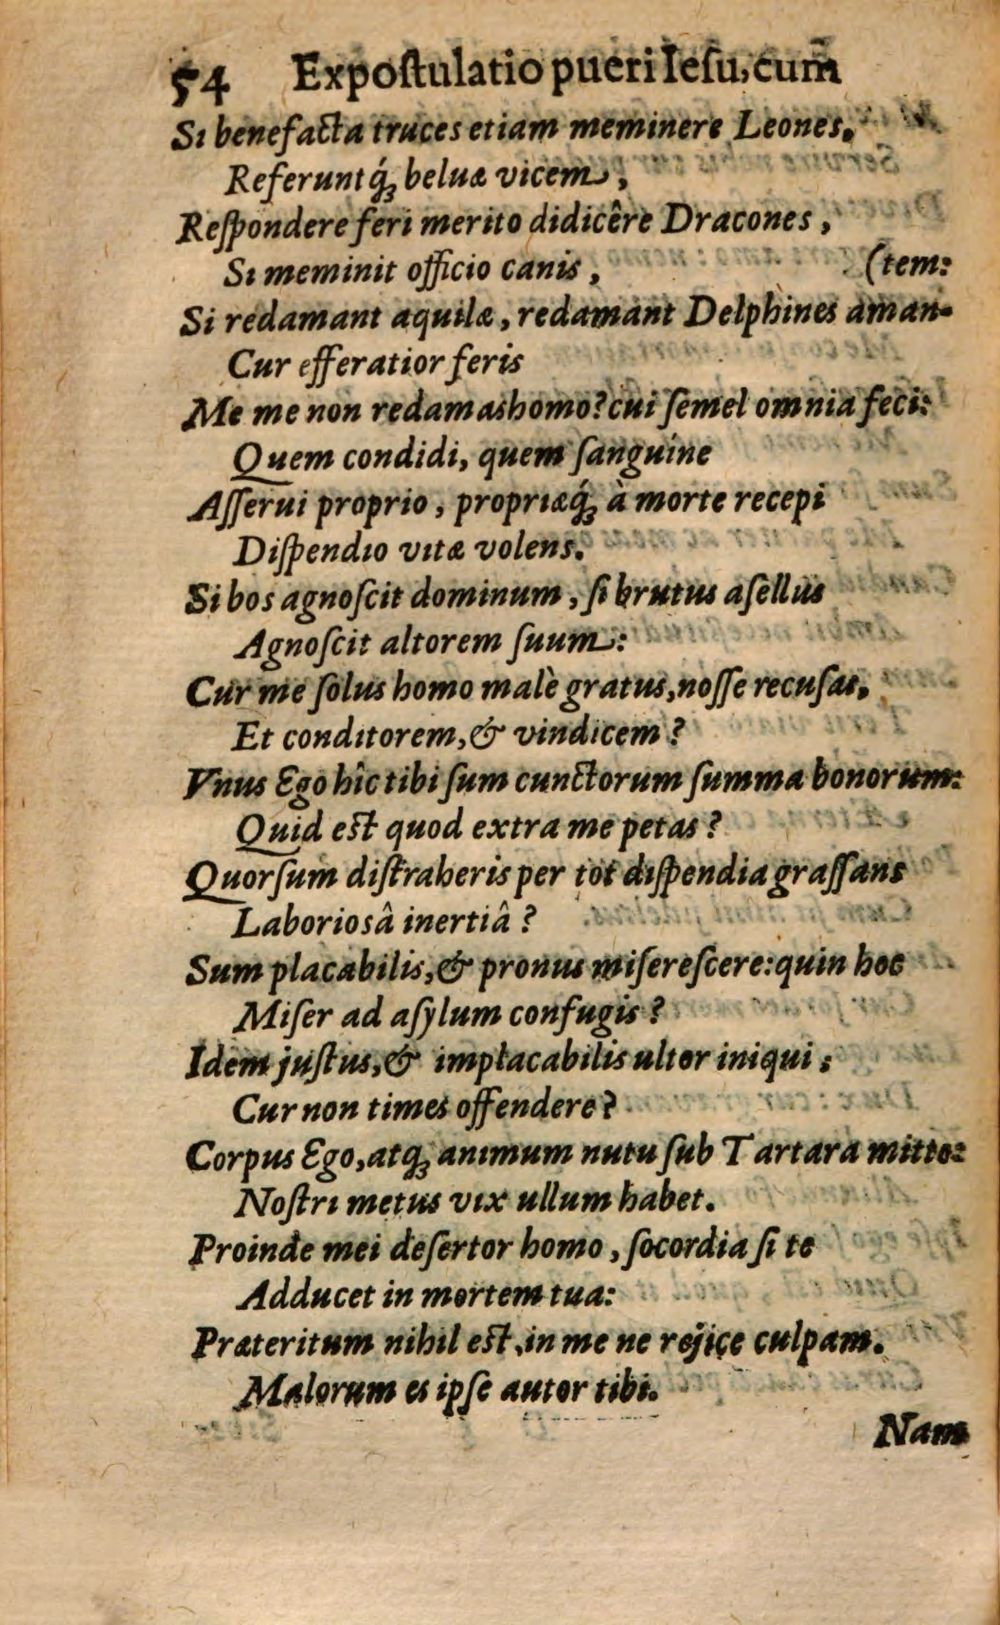 54 Expoſtulatio pueri Ieſu, cum̃
Si benefacta truces etiam meminere Leones,
Referuntq́ꝫ beluæ vicem,
Reſpondere feri merito didicêre Dracones,
Si meminit officio canis, (tem:
Si redamant aquilæ, redamant Delphines aman-
Cur efferatior feris
Me me non redamas homo? cui ſemel omnia feci:
Quem condidi, quem ſanguine
Aſſerui proprio, propriæq́ꝫ à morte recepi
Diſpendio vitæ volens.
Si bos agnoſcit dominum, ſi brutus aſellus
Agnoſcit altorem ſuum:
Cur me ſolus homo malè gratus, noſſe recuſas,
Et conditorem, & vindicem?
Vnus Ego hîc tibi ſum cunctorum ſumma bonorum:
Quid eſt quod extra me petas?
Quorſum diſtraheris per tot diſpendia graſſans
Laboriosâ inertiâ?
Sum placabilis, & pronus miſereſcere: quin hoc
Miſer ad aſylum confugis?
Idem juſtus, & implacabilis ultor iniqui;
Cur non times offendere?
Corpus Ego, atqꝫ animum nutu ſub Tartara mitto:
Noſtri metus vix ullum habet.
Proinde mei deſertor homo, ſocordia ſi te
Adducet in mortem tua:
Præteritum nihil eſt, in me ne rejice culpam.
Malorum es ipſe autor tibi.
Nam